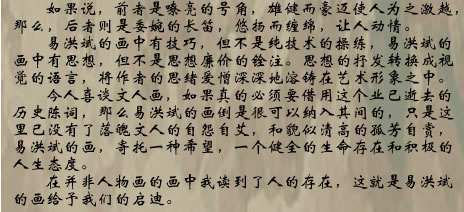 如果说,前者是嘹亮的号角,雄健而豪迈使人为之激越,
那么,后者则是委婉的长笛,悠扬而缠绵,让人动情。
易洪斌的画中有技巧,但不是纯技术的操练,易洪斌的
画中有思想,但不是思想廉价的铨注。思想的抒发转换成视
觉的语言,将作者的思绪爱憎深深地溶铸在艺术形象之中。
今人喜谈文人画,如果真的必须要借用这个业已逝去的
历史陈词,那么易洪斌的画倒是很可以纳入其间的,只是这
里已没有了落魄文人的自怨自艾,和貌似清高的孤芳自赏,
易洪斌的画,寄托一种希望,一个健全的生命存在和积极的
人生态度。
在并非人物画的画中我读到了人的存在,这就是易洪斌
的画给予我们的启迪。